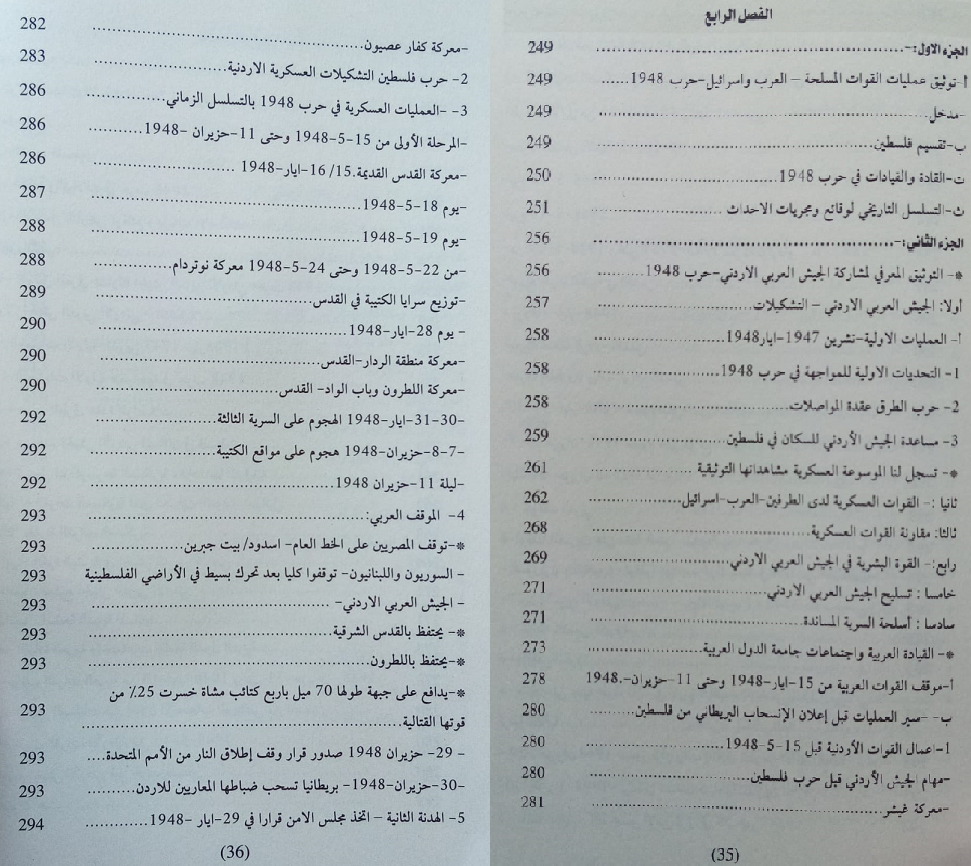 الفصل الرابع
الجزء الاول:-........ 249
أ-توثيق عمليات القوات المسلحة – العرب واسرائيل-حرب 1948...... 249
-مدخل........ 249
ب-تقسيم فلسطين........ 249
ت-القادة والقيادات في حرب 1948........ 250
ث-التسلسل التاريخي لوقائع ومجريات الاحداث........ 251
الجزء الثاني:-........ 256
*- التوثيق المعرفي لمشاركة الجيش العربي الاردني-حرب 1948........ 256
أولا: الجيش العربي الاردني – التشكيلات........ 257
أ- العمليات الاولية-تشرين 1947-ايار1948........ 258
1- التحديات الاولية للمواجهة في حرب 1948........ 258
2- حرب الطرق عقدة المواصلات........ 258
3- مساعدة الجيش الأردني للسكان في فلسطين........ 259
*- تسجل لنا الموسوعة العسكرية مشاهداتها التوثيقية........ 261
ثانيا :- القوات العسكرية لدى الطرفين-العرب-اسرائيل........ 262
ثالثا: مقارنة القوات العسكرية........ 268
رابع:- القوة البشرية في الجيش العربي الاردني........ 269
خامسا : تسليح الجيش العربي الاردني........ 271
سادسا : أسلحة السرية المساندة........ 271
*- القيادة العربية واجتماعات جامعة الدول العربية........ 273
أ-موقف القوات العربية من 15-ايار-1948 وحتى 11-حزيران-1948. 278
ب- -سير العمليات قبل إعلان الإنسحاب البريطاني من فلسطين........ 280
1-اعمال القوات الأردنية قبل 15-5-1948........ 280
-مهام الجيش الأردني قبل حرب فلسطين........ 280
-معركة غيشر........ 281
(35)
-معركة كفار عصيون........ 282
2- حرب فلسطين التشكيلات العسكرية الاردنية........ 283
3- -العمليات العسكرية في حرب 1948 بالتسلسل الزماني........ 286
-المرحلة الأولى من 15-5-1948 وحتى 11-حزيران -1948........ 286
-معركة القدس القديمة.15/ 16-ايار-1948 ........ 286
-يوم 18-5-1948........ 287
-يوم 19-5-1948........ 288
-من 22-5-1948 وحتى 24-5-1948 معركة نوتردام........ 288
-توزيع سرايا الكتيبة في القدس........ 289
- يوم 28-ايار-1948........ 290
-معركة منطقة الردار-القدس........ 290
-معركة اللطرون وباب الواد- القدس........ 290
-30-31-ايار-1948 الهجوم على السرية الثالثة........ 292
-7-8-حزيران-1948 هجوم على مواقع الكتيبة........ 292
-ليلة 11-حزيران 1948........ 292
4- الموقف العربي:........ 293
*-توقف المصريين على الخط العام- اسدود/ بيت جبرين........ 293
- السوريون واللبنانيون- توقفوا كليا بعد تحرك بسيط في الأراضي الفلسطينية 293
- الجيش العربي الاردني- ........ 293
*- يحتفظ بالقدس الشرقية........ 293
*-يحتفظ باللطرون........ 293
*-يدافع على جبهة طولها 70 ميل باربع كتائب مشاة خسرت 25٪ من
قوتها القتالية........ 293
- 29- حزيران 1948 صدور قرار وقف إطلاق النار من الأمم المتحدة.... 293
-30-حزيران-1948- بريطانيا تسحب ضباطها المعاريين للاردن........ 293
5- الهدنة الثانية – اتخذ مجلس الامن قرارا في 29-ايار -1948........ 294
(36)